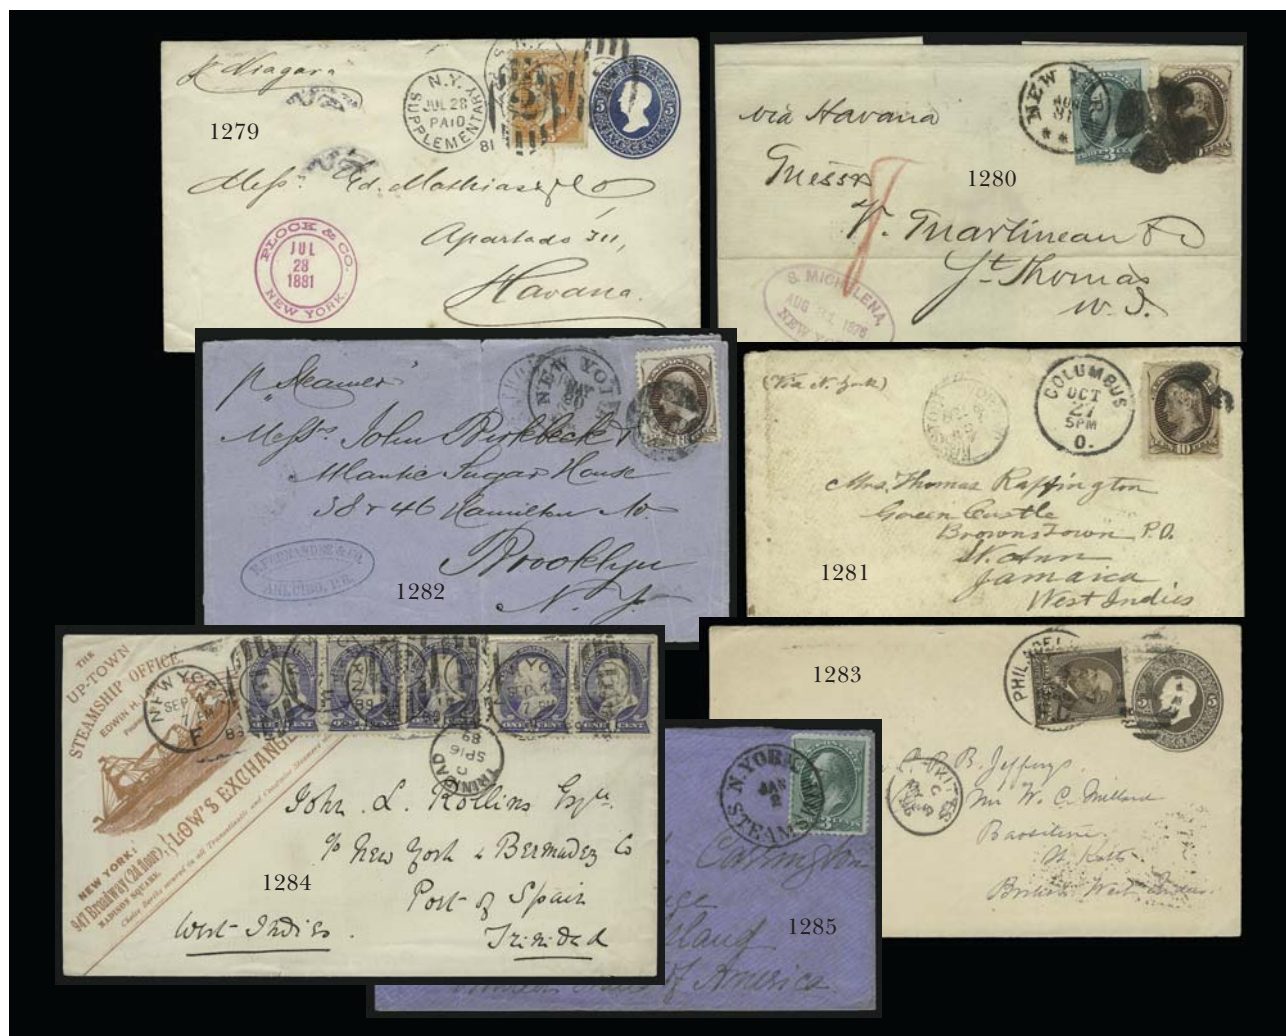 p. Niagara
N.Y.
JUL 28
PAID
SUPPLEMENTARY
81
2
5
1279
Messrs. Ed. Mathias & Co
Apartado 311,
Havana.
PLOCK & CO.
JUL
28
1881
NEW YORK.
NEW YORK
AUG
via Havana
1280
Messrs
V. Martineau & Co
St Thomas
W.I.
S. MICHELENA,
AUG 1876
NEW YO
p. Steamer
NEW YORK
Messrs John Birkbeck
Atlantic Sugar House
38 & 46 Hamilton Av.
Brooklyn
N.Y.
F. FERNANDEZ & CO.
1282
(Via N. York)
COLUMBUS
OCT
27
5PM
O.
10
Mrs. Thomas Raffington
Green Castle
Brownstown P.O.
St. Ann
Jamaica
West Indies
1281
THE
UP-TOWN
STEAMSHIP OFFICE.
EDWIN H.
LOW'S EXCHANGE
NEW YORK:
947 Broadway (2d floor),
MADISON SQUARE.
NEW YORK
SEP
F
89
TRINIDAD
C
SP16
89
John L. Rollins Esqre.
c/o New York & Bermudez Co
Port of Spain
Trinidad
West Indies.
1284
1283
PHILADEL
5
B. Jeffery
Mr W. C. Millard
Basseterre
St. Kitts
British West Indies.
N. YORK
JAN
2
STEAMSHIP
3 CENTS
Carrington
1285
of America